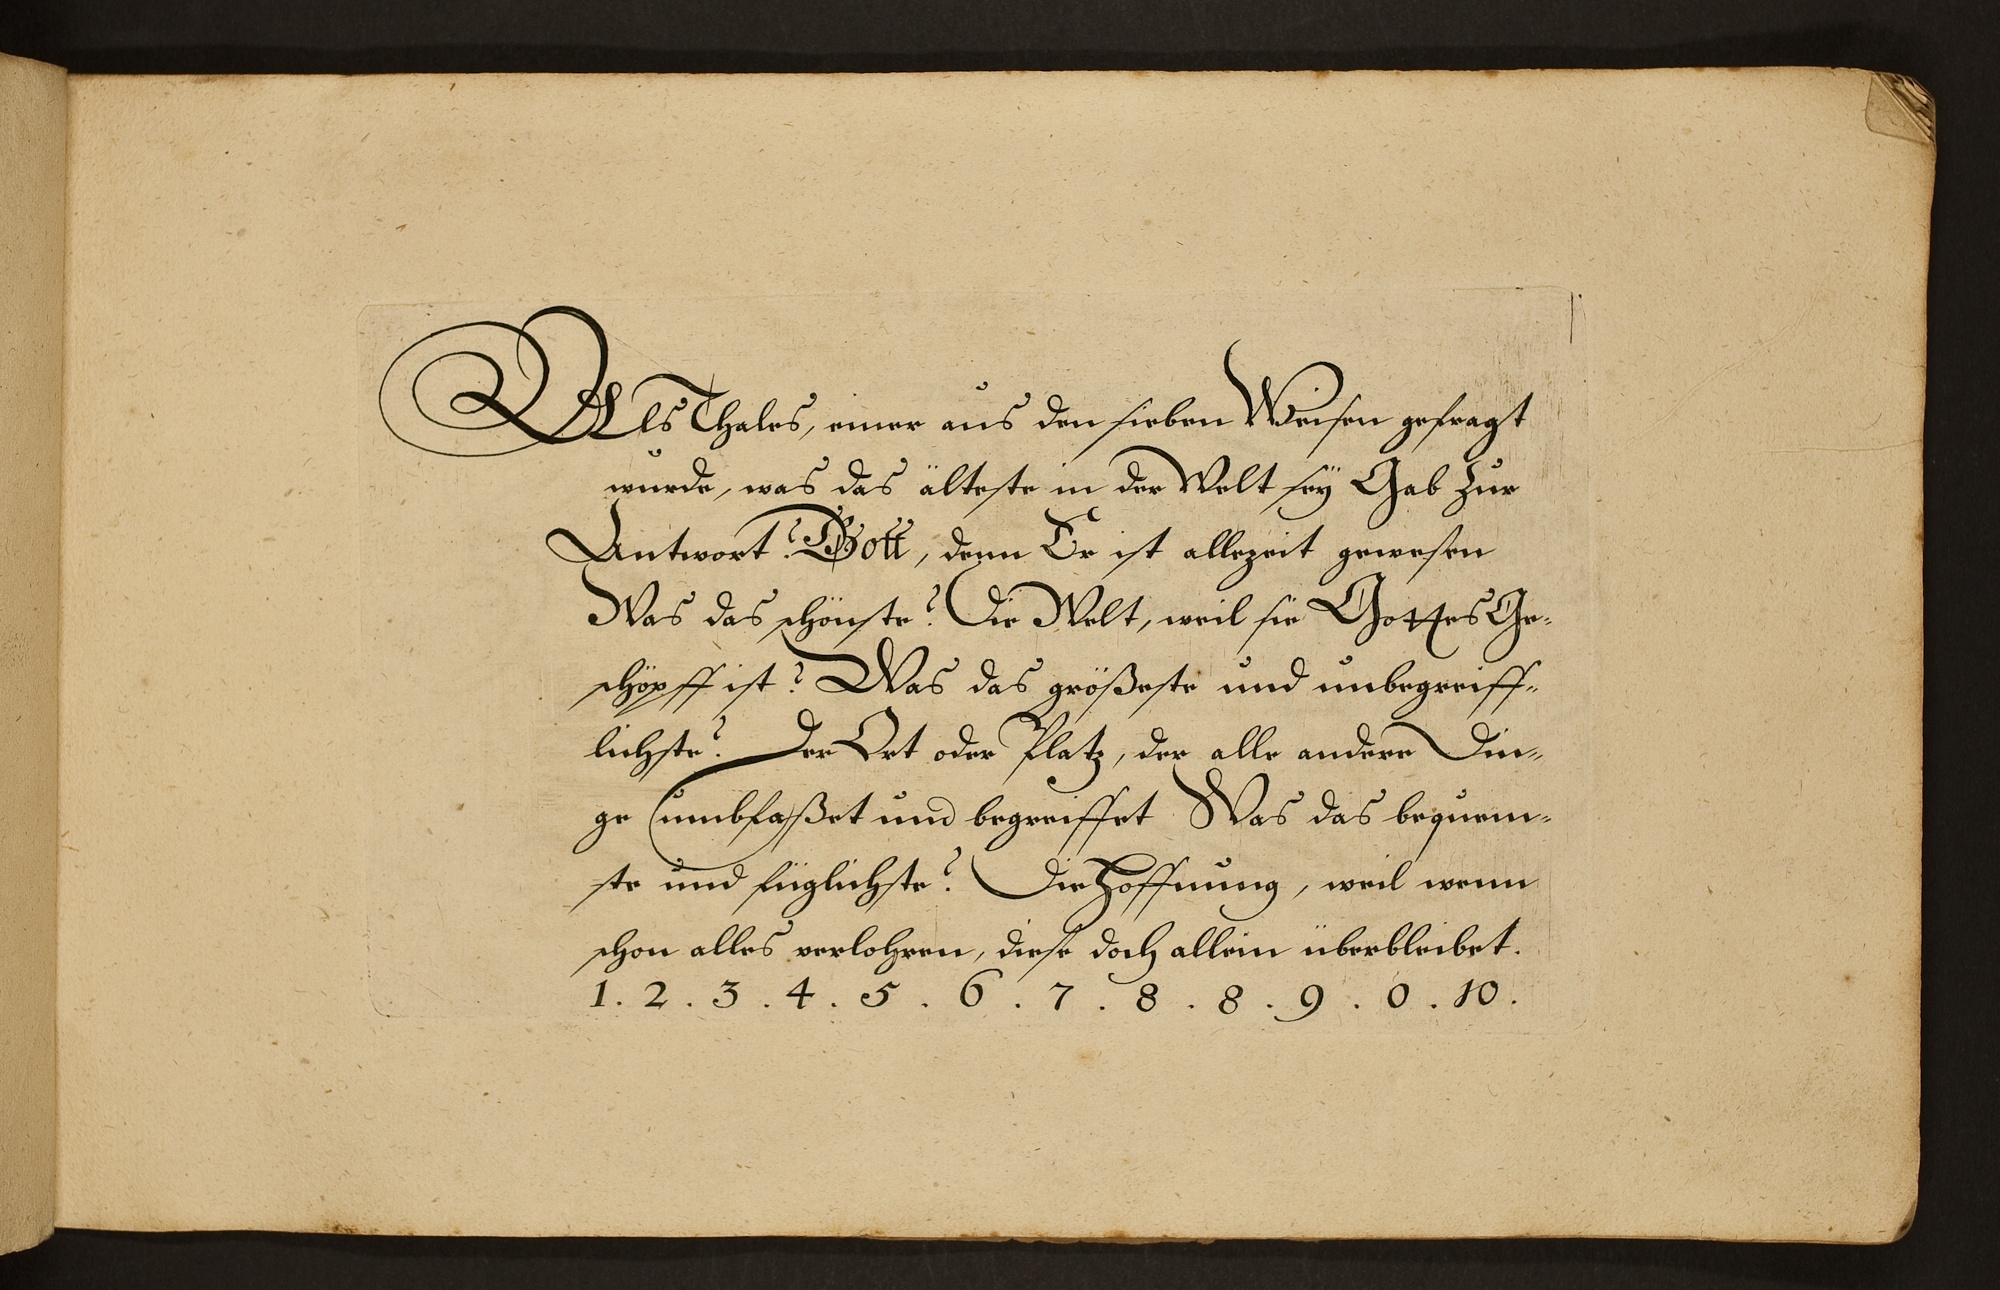 Als Thales, einer aus den sieben Weisen gefragt
wurde, was das älteste in der Welt seÿ Gab zur
Antwort? Gott, denn Er ist allezeit gewesen
Was das schönste? Die Welt, weil sie Gottes Ge-
schöpff ist? Was das größeste und unbegreiff-
lichste? Der Ort oder Platz, der alle andere Din-
ge umbfaßet und begreiffet Was das bequem-
ste und füglichste? Die Hoffnung, weil wenn
schon alles verlohren, diese doch allein überbleibet.
1. 2. 3. 4. 5. 6. 7. 8. 8. 9. 0. 10.